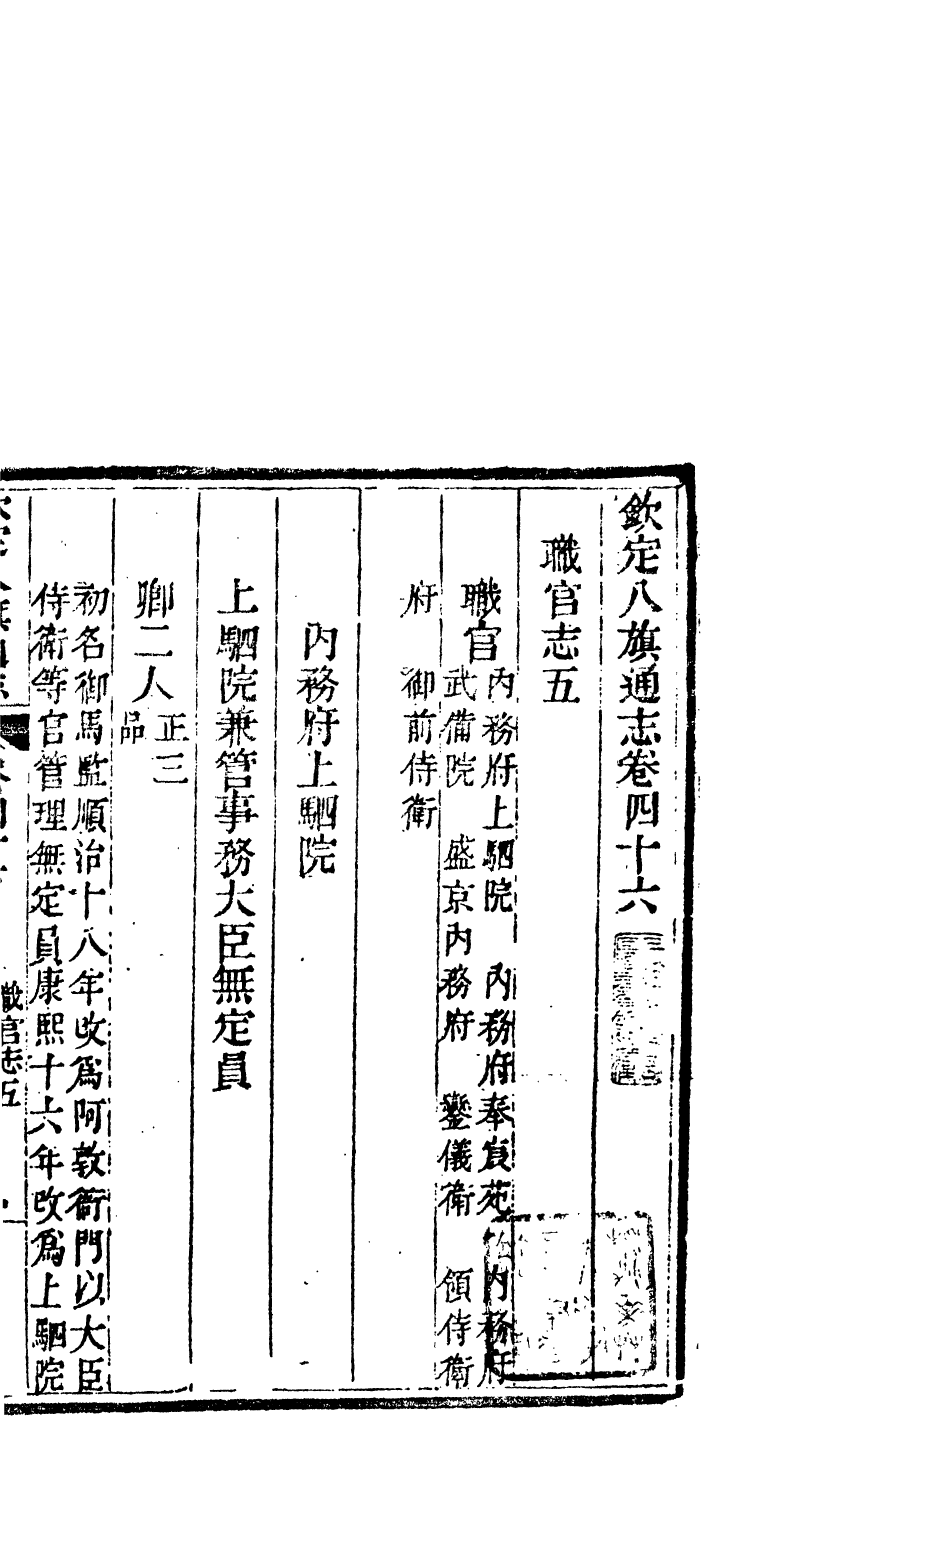 欽定八旗通志卷四十六
職官志五
職官
內務府上駟院　內務府奉宸苑　內務府
武備院　盛京內務府　鑾儀衛　領侍衛
府　御前侍衛
內務府上駟院
上駟院兼管事務大臣無定員
卿二人
正三
品
初名御馬監順治十八年改爲阿敦衙門以大臣
侍衛等官管理無定員康熙十六年改爲上駟院
職官志五
一